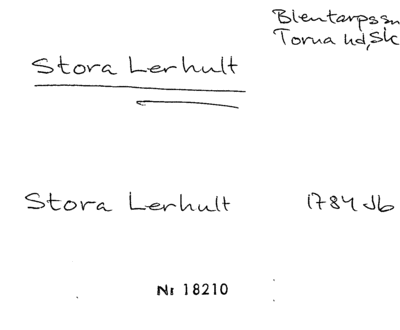 Blentarps sn
Torna hd, Sk
Stora Lerhult
Stora Lerhult 1784 Jb
Nr 18210